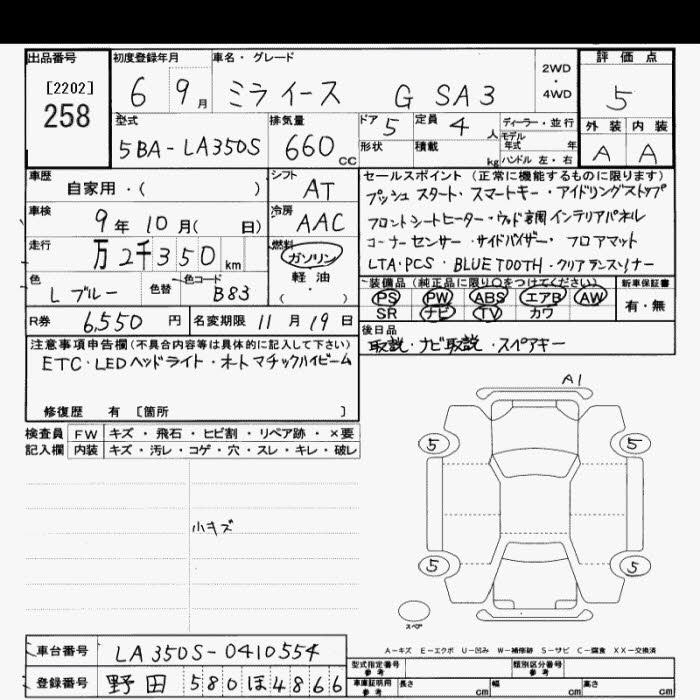 出品番号 初度登録年月 車名・グレード 評価点
[2202] 6 9月 ミライース G SA3 2WD・4WD 5
258 型式 排気量 ドア 5 定員 4人 ディーラー・並行 外装 内装
5BA-LA350S 660cc 形状 積載 kg モデル年式 年 A A
ハンドル 左・右
車歴 自家用・( ) シフト AT セールスポイント (正常に機能するものに限ります)
車検 9年 10月( 日) 冷房 AAC プッシュスタート・スマートキー・アイドリングストップ
フロントシートヒーター・ウッド調インテリアパネル
走行 万2千350km 燃料 ガソリン コーナーセンサー・サイドバイザー・フロアマット
軽油 LTA・PCS・BLUETOOTH・クリアランスソナー
色 Lブルー 色替 色コード B83 ( ・ ) 装備品 (純正品に限り○をつけてください) 新車保証書
PS PW ABS エアB AW 有・無
R券 6,550円 名変期限 11月19日 SR ナビ TV カワ
注意事項申告欄 (不具合内容等は具体的に記入して下さい) 後日品
ETC・LEDヘッドライト・オートマチックハイビーム 取説・ナビ取説・スペアキー
修復歴 有 [箇所 ]
A1
検査員 FW キズ・飛石・ヒビ割・リペア跡・×要
記入欄 内装 キズ・汚レ・コゲ・穴・スレ・キレ・破レ
5 5
小キズ
5 5
スペア
車台番号 LA350S-0410554
A-キズ E-エクボ U-凹み W-補修跡 S-サビ C-腐食 XX-交換済
登録番号 野田 580 ほ 4866
型式指定番号 参考 類別区分番号 参考
車庫証明用 参考 長さ cm 幅 cm 高さ cm